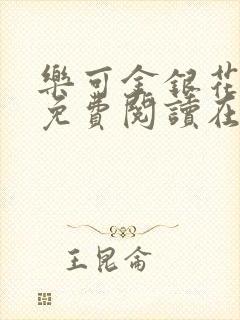 樂可金銀花
免費閱讀在
王昆侖